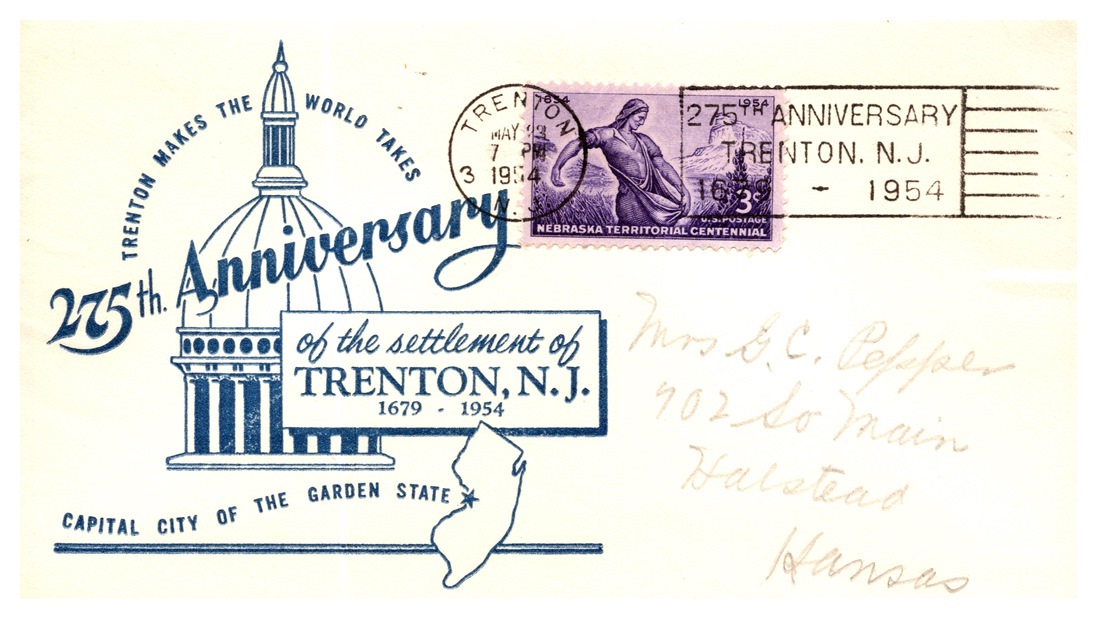 TRENTON MAKES THE WORLD TAKES
275th. Anniversary
of the settlement of
TRENTON, N.J.
1679 - 1954
CAPITAL CITY OF THE GARDEN STATE
TRENTON
MAY
7 PM
3 1954
N. J.
1854
1954
3¢
U.S. POSTAGE
NEBRASKA TERRITORIAL CENTENNIAL
275TH ANNIVERSARY
TRENTON. N.J.
1679 - 1954
Mrs G. C. Pepper
902 So Main
Halstead
Kansas